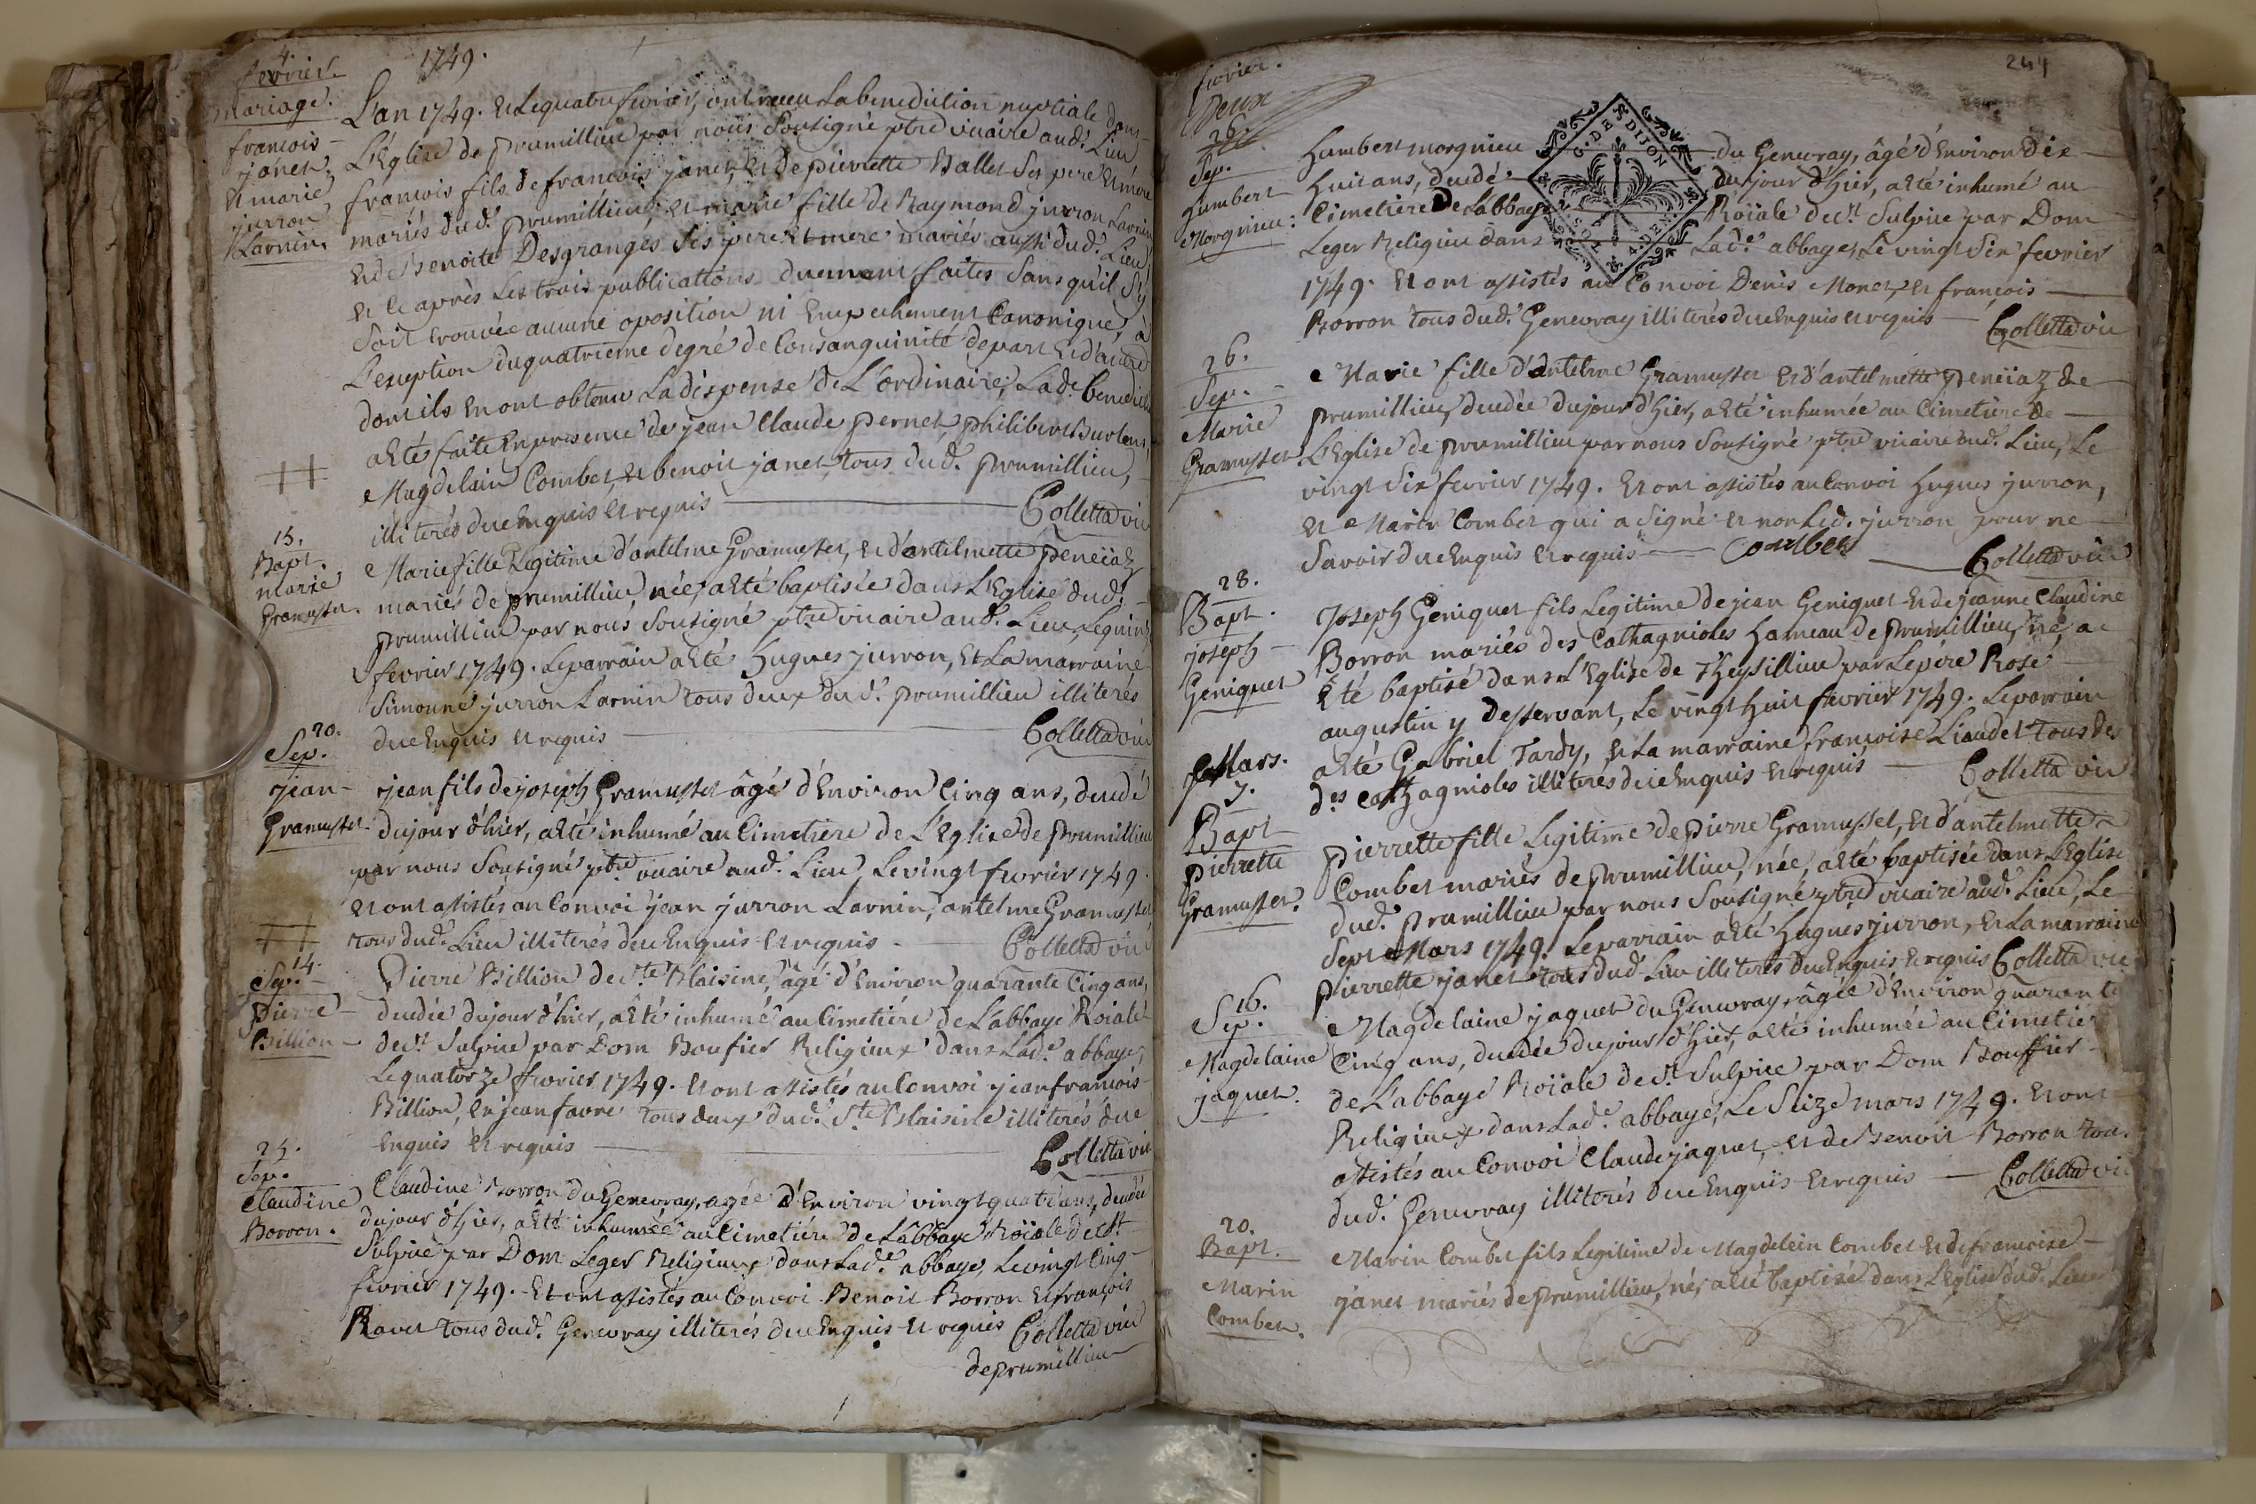 4.
fevrier. 1749.
mariage.
francois
janet.
Et marie
jurron
Larnin.
L'an 1749. Et Le quatre fevrier, ont receu La benediction nuptiale dans
L'Eglise de prumillieu par nous Sousigné ptre vicaire aud. Lieu,
francois fils de francois janet, Et de pierrette Ballet Ses pere Et mere
mariés dud. prumillieu; Et marie fille de Raymond jurron Larnin
Et de Benoite Desgranges Ses pere Et mere mariés aussi dud. Lieu,
Et ce après Les trois publications duement faites Sans qu'il S'y
Soit trouvée aucune oposition ni Empechement Canonique, à
L'exception du quatrieme degré de Consanguinité de part Et d'autre
dont ils En ont obtenu La dispense de L'ordinaire; Lade. benediction
a Eté faite En presence de jean Claude pernet, philibert
Magdelain Combet, Et benoit janet, tous dud. prumillieu,
illiterés de ce Enquis Et requis Colletta vic
15.
Bapt.
marie
Gramusset.
Marie fille Legitime d'antelme Gramusset, Et d'antelmette peneiaz
mariés de prumillieu, née, a Eté baptisée dans L'Eglise dud.
prumillieu par nous Sousigné ptre vicaire aud. Lieu, Le quinze
fevrier 1749. Le parrain a Eté Hugues jurron, Et La marraine
Simonne jurron Larnin tous deux dud. prumillieu illiterés
de ce Enquis Et requis Colletta vic
20.
Sep.
jean
Gramusset
jean fils de joseph Gramusset âgé d'Environ Cinq ans, decedé
du jour d'hier, a Eté inhumé au Cimetiere de L'Eglise de prumillieu
par nous Sousigné ptre vicaire aud. Lieu, Le vingt fevrier 1749.
Et ont assistés au Convoi jean jurron Larnin, antelme Gramusset
tous dud. Lieu illiterés de ce Enquis Et requis. Colletta vic
14.
Sep.
Pierre
Billion
Pierre Billion de Ste Blaisine, âgé d'Environ quarante Cinq ans,
decedé du jour d'hier, a Eté inhumé au Cimetiére de L'abbaye Roiale
de St Sulpice par Dom Boufier Religieux dans Lade. abbaye,
Le quatorze fevrier 1749. Et ont assistés au Convoi jean francois
Billion, Et jean favre tous deux dud. Ste Blaisine illiterés de ce
Enquis Et requis Colletta vic
25.
Sep.
Claudine
Borron.
Claudine Borron du Genevray, agée d'Environ vingt quatre ans, decedée
du jour d'hier, a Eté inhumée au Cimetiére de L'abbaye Roïale de St
Sulpice par Dom Leger Religieux dans Lade. abbaye, Le vingt Cinq
fevrier 1749. Et ont assistés au Convoi Benoit Borron Et françois
Ravet tous dud. Genevray illiterés de ce Enquis Et requis Colletta vic
de prumillieu
fevrier. 244
Deux
26.
Sep.
Humbert
Morgnieu:
G. DE DIJON
Humbert morgnieu du Genevray, âgé d'Environ Dix
huit ans, decedé du jour d'hier, a Eté inhumé au
Cimetiere De L'abbaye Roïale de St Sulpice par Dom
Leger Religieux dans Lade. abbaye, Le vingt Six fevrier
1749. Et ont assistés au Convoi Denis Monet, Et françois
Borron tous dud. Genevray illiterés de ce Enquis Et requis Colletta vic
26.
Sep.
Marie
Gramusset
Marie fille d'antelme Gramusset Et d'antelmette peneïaz de
prumillieu, decedée du jour d'hier, a Eté inhumée au Cimetiere de
L'Eglise de prumillieu par nous Sousigné ptre vicaire aud. Lieu, Le
vingt Six fevrier 1749. Et ont assistés au Convoi Hugues jurron,
Et Marin Combet qui a Signé Et non Led. jurron pour ne
Savoir de ce Enquis Et requis Combet Colletta vic
28.
Bapt.
joseph
Geniquet
Joseph Geniquet fils Legitime de jean Geniquet Et de jeanne Claudine
Borron mariés des Cathagnioles Hameau de prumillieu, né, a
Eté baptisé dans L'Eglise de Theysillieu par Le pére Rose
augustin y desservant, Le vingt huit fevrier 1749. Le parrain
a Eté Gabriel Tardy, Et La marraine francoise Liaudet tous des
des Cathagnioles illiterés de ce Enquis Et requis Colletta vic
Mars.
7.
Bapt
Pierrette
Gramusset.
Pierrette fille Legitime de Pierre Gramusset, Et d'antelmette
Combet mariés de prumillieu, née, a Eté baptisée dans L'Eglise
dud. prumillieu par nous Sousigné ptre vicaire aud. Lieu, Le
Sept Mars 1749. Le parrain a Eté Hugues jurron, Et La marraine
pierrette janet tous dud. Lieu illiterés de ce Enquis Et requis Colletta vic
16.
Sep.
Magdelaine
jaquet.
Magdelaine jaquet du Genevray, âgée d'Environ quarante
Cinq ans, decedée du jour d'hier, a Eté inhumée au Cimetiere
de L'abbaye Roïale de St Sulpice par Dom Bouffier
Religieux dans Lade. abbaye, Le Seize mars 1749. Et ont
assistés au Convoi Claude jaquet, et de Benoit Borron tous
dud. Genevray illiterés de ce Enquis Et requis Colletta vic
20.
Bapt.
Marin
Combet.
Marin Combet fils Legitime de Magdelein Combet Et de francoise
janet mariés de prumillieu, né, a Eté baptisé dans L'Eglise dud. Lieu